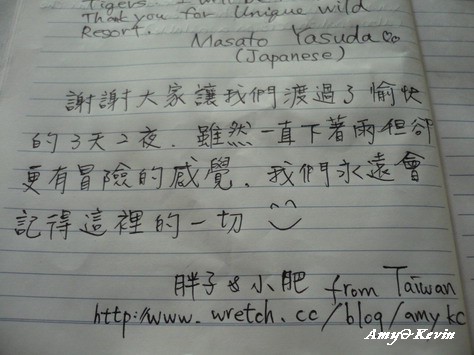 Tigers. I will be
Thank you for Unique wild
Resort.
Masato Yasuda
(Japanese)
謝謝大家讓我們渡過了愉快
的3天2夜. 雖然一直下著雨但卻
更有冒險的感覺. 我們永遠會
記得這裡的一切
胖子&小肥 from Taiwan
http://www.wretch.cc/blog/amykc
Amy&Kevin